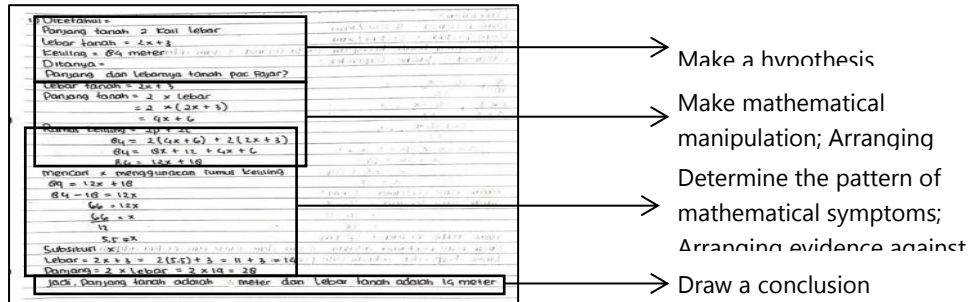 1) Diketahui =
Panjang tanah 2 kali lebar
Lebar tanah = 2x+3
Keliling = 84 meter
Ditanya =
Panjang dan lebarnya tanah pac Fajar?
Lebar tanah = 2x+3
Panjang tanah = 2 x lebar
= 2 x (2x + 3)
= 4x + 6
Rumus keliling = 2p + 2l
84 = 2(4x+6) + 2(2x+3)
84 = 8x + 12 + 4x + 6
84 = 12x + 18
mencari x menggunakan rumus keliling
84 = 12x + 18
84 - 18 = 12x
66 = 12x
66 = x
12
5.5 = x
Subsitusi x
Lebar = 2x + 3 = 2(5.5) + 3 = 11 + 3 = 14
Panjang = 2 x Lebar = 2 x 14 = 28
Jadi, Panjang tanah adalah meter dan Lebar tanah adalah 14 meter
Make a hypothesis
Make mathematical
manipulation; Arranging
Determine the pattern of
mathematical symptoms;
Arranging evidence against
Draw a conclusion